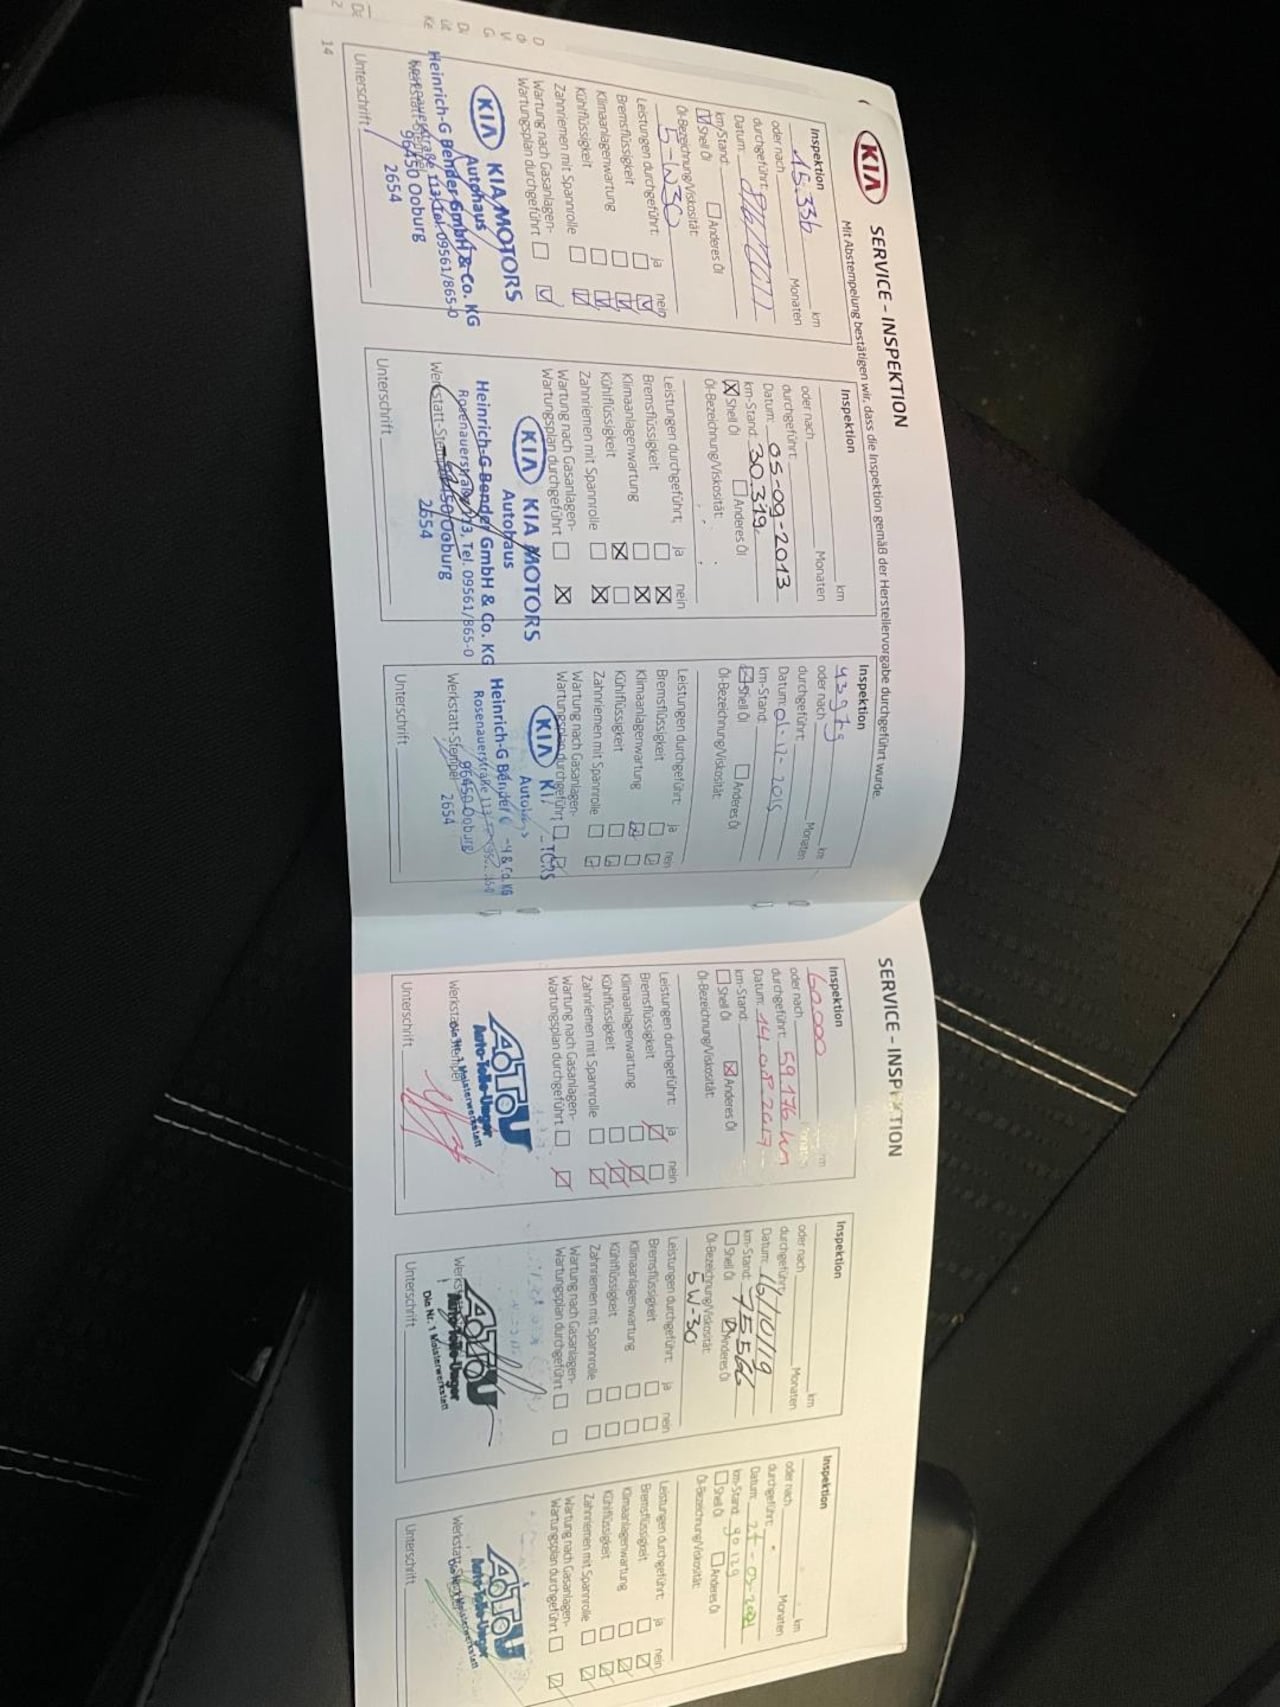 KIA
SERVICE - INSPEKTION
Mit Abstempelung bestätigen wir, dass die Inspektion gemäß der Herstellervorgabe durchgeführt wurde.
Inspektion
15.336 km
oder nach Monaten
durchgeführt:
Datum:
km/Stand:
Shell Öl Anderes Öl
Öl-Bezeichnung/Viskosität:
5-W30
Leistungen durchgeführt: ja nein
Bremsflüssigkeit
Klimaanlagenwartung
Kühlflüssigkeit
Zahnriemen mit Spannrolle
Wartung nach Gasanlagen-
Wartungsplan durchgeführt
KIA KIA MOTORS
Autohaus
Heinrich-G Bender GmbH & Co. KG
Rosenauerstraße 113, Tel. 09561/865-0
Werkstatt-Stempel
96450 Coburg
2654
Unterschrift
14
Inspektion
km
oder nach Monaten
durchgeführt:
Datum: 05-09-2013
km-Stand: 30.319
Shell Öl Anderes Öl
Öl-Bezeichnung/Viskosität:
Leistungen durchgeführt: ja nein
Bremsflüssigkeit
Klimaanlagenwartung
Kühlflüssigkeit
Zahnriemen mit Spannrolle
Wartung nach Gasanlagen-
Wartungsplan durchgeführt
KIA KIA MOTORS
Autohaus
Heinrich-G Bender GmbH & Co. KG
Rosenauerstraße 113, Tel. 09561/865-0
Werkstatt-Stempel 96450 Coburg
2654
Unterschrift
Inspektion
43979 km
oder nach Monaten
durchgeführt:
Datum: 01-12-2015
km-Stand:
Shell Öl Anderes Öl
Öl-Bezeichnung/Viskosität:
Leistungen durchgeführt: ja nein
Bremsflüssigkeit
Klimaanlagenwartung
Kühlflüssigkeit
Zahnriemen mit Spannrolle
Wartung nach Gasanlagen-
Wartungsplan durchgeführt
KIA
Autohaus
Heinrich-G Bender & Co. KG
Rosenauerstraße 113
Werkstatt-Stempel 96450 Coburg
2654
Unterschrift
SERVICE - INSPEKTION
Inspektion
60.000 km
oder nach Monaten
durchgeführt: 59176 km
Datum: 14.08.2017
km-Stand:
Shell Öl Anderes Öl
Öl-Bezeichnung/Viskosität:
Leistungen durchgeführt: ja nein
Bremsflüssigkeit
Klimaanlagenwartung
Kühlflüssigkeit
Zahnriemen mit Spannrolle
Wartung nach Gasanlagen-
Wartungsplan durchgeführt
Auto-Teile-Unger
Die Nr. 1 Meisterwerkstatt
Werkstatt-Stempel
Unterschrift
Inspektion
km
oder nach Monaten
durchgeführt:
Datum: 16/10/19
km-Stand:
Shell Öl Anderes Öl
Öl-Bezeichnung/Viskosität:
5W-30
Leistungen durchgeführt: ja nein
Bremsflüssigkeit
Klimaanlagenwartung
Kühlflüssigkeit
Zahnriemen mit Spannrolle
Wartung nach Gasanlagen-
Wartungsplan durchgeführt
Auto-Teile-Unger
Die Nr. 1 Meisterwerkstatt
Unterschrift
Inspektion
km
oder nach Monaten
durchgeführt:
Datum:
km-Stand: 90129
Shell Öl Anderes Öl
Öl-Bezeichnung/Viskosität:
Leistungen durchgeführt: ja nein
Bremsflüssigkeit
Klimaanlagenwartung
Kühlflüssigkeit
Zahnriemen mit Spannrolle
Wartung nach Gasanlagen-
Wartungsplan durchgeführt
Auto-Teile-Unger
Unterschrift